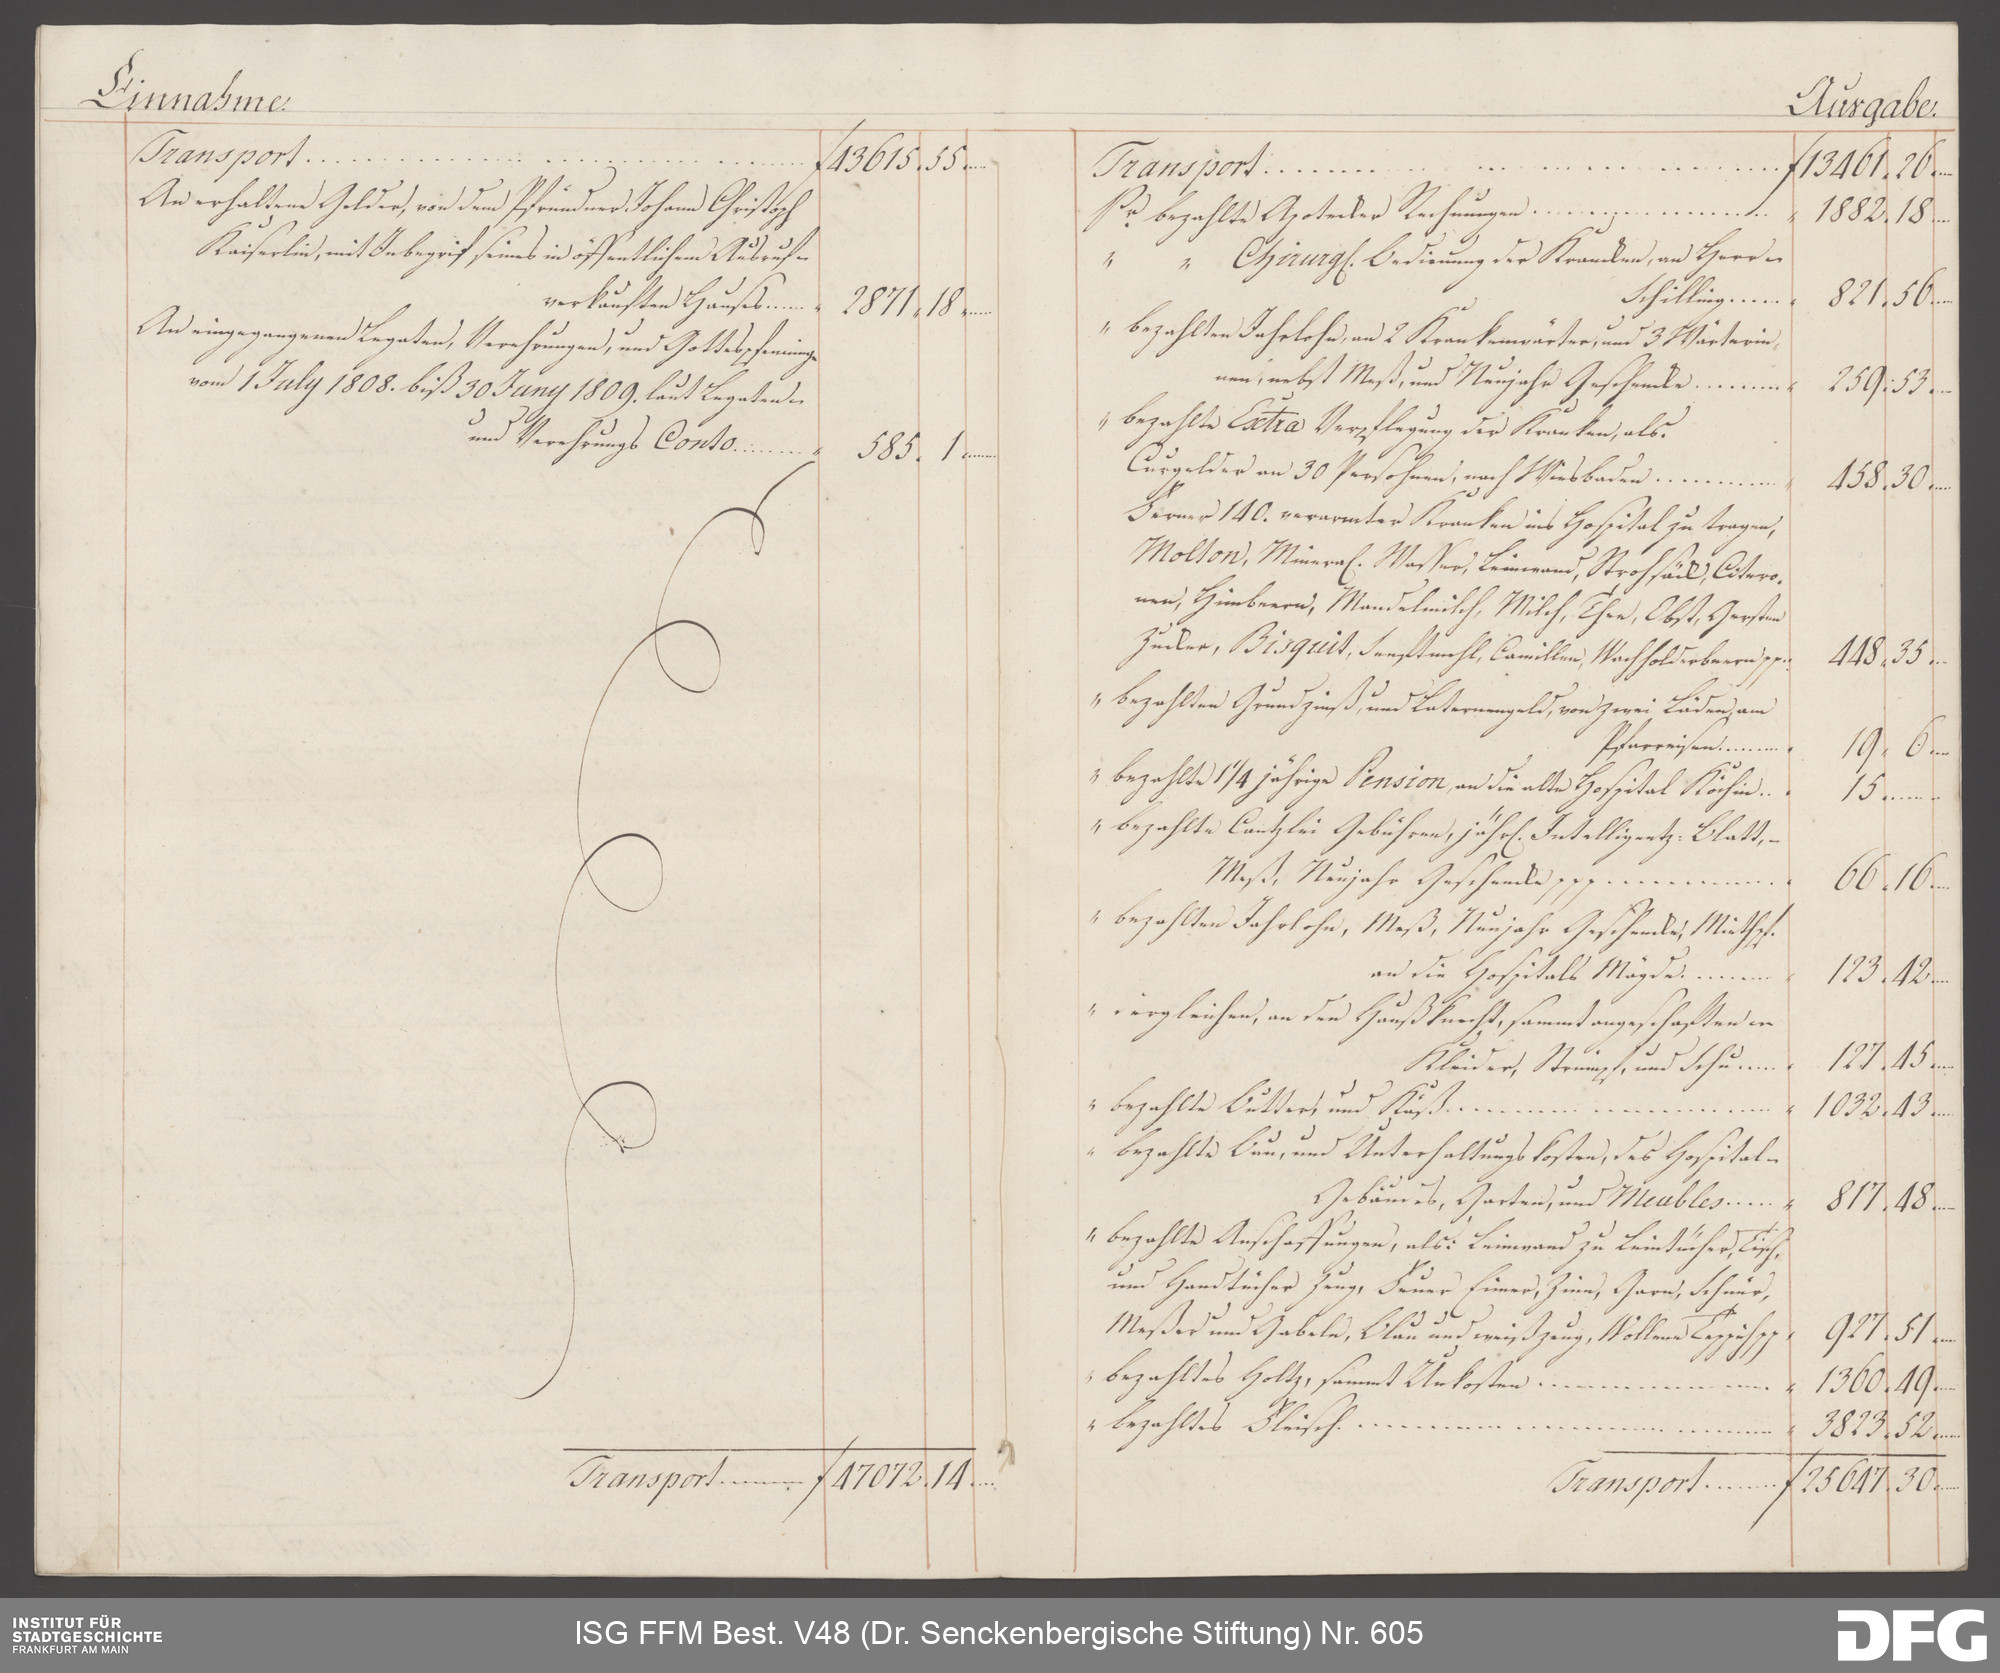 Einnahme.
Transport ........ f 43615. 55.
An erhaltene Gelder, von dem Pfründner Johann Christoph
Kaiserlin, mit Inbegrif seines in öffentlichem Ausruf
verkauften Hauses..... " 2871. 18.
An eingegangenen Legaten, Verehrungen, und Gottespfenninge
vom 1 July 1808. biß 30 Juny 1809. laut Legaten
und Verehrungs Conto........ " 585. 1.
Transport........ f 47072. 14.
Ausgabe.
Transport ........ f 13461. 26.
Pr. bezahlte Apotecker Rechnungen ........ " 1882. 18.
" " Chirurgl. Bedienung der Krancken, an Herrn
Schilling..... " 821. 56.
" bezahlten Jahrlohn, an 2 Krankenwärter, und 3 Wärterin,
nen, nebst Meß, und Neujahr Geschencke ........ " 259. 53.
" bezahlte Extra Verpflegung der Kranken, als:
Curgelder an 30 Persohnen, nach Wiesbaden ........ " 458. 30.
Ferner 140. verarmter Kranken ins Hospital zu tragen,
Molton, Mineral. Wasser, Leinwand, Strohsäck, Citro,
nen, Himbeern, Mandelmilch, Milch, Thee, Obst, Gersten
Zucker, Bisquit, Senftmehl, Camillen, Wachholderbeern pp. " 448. 35.
" bezahlten Grundzinß, und Laternengeld, von zwei Läden, am
Pfarreisen........ " 19. 6.
" bezahlte 1 1/4 jährige Pension, an die alte Hospital Köchin.. " 15.
" bezahlte Cantzlei Gebühren, jährl. Intelligentz: Blatt,
Meß, Neujahr Geschencke ppp........ " 66. 16.
" bezahlten Jahrlohn, Meß, Neujahr Geschencke, Miethpf.
an die Hospitals Mägde........ " 123. 42.
" dergleichen, an den Haußknecht, sammt angeschaften
Kleider, Strümpf, und Schu..... " 127. 45.
" bezahlte Butter, und Käß........ " 1032. 43.
" bezahlte Bau, und Unterhaltungskosten, des Hospital
Gebäudes, Garten, und Meubles..... " 817. 48.
" bezahlte Anschaffungen, als: Leinwand zu Leintücher, Tisch,
und Handtücher Zeug, Feuer Eimer, Zinn, Garn, Schnür,
Meßer und Gabeln, Blau und weiß zeug, Wollene Teppich pp " 927. 51.
" bezahltes Holtz, sammt Unkosten ........ " 1360. 49.
" bezahltes Fleisch. ........ " 3823. 52.
Transport........ f 25647. 30.
INSTITUT FÜR
STADTGESCHICHTE
FRANKFURT AM MAIN
ISG FFM Best. V48 (Dr. Senckenbergische Stiftung) Nr. 605
DFG